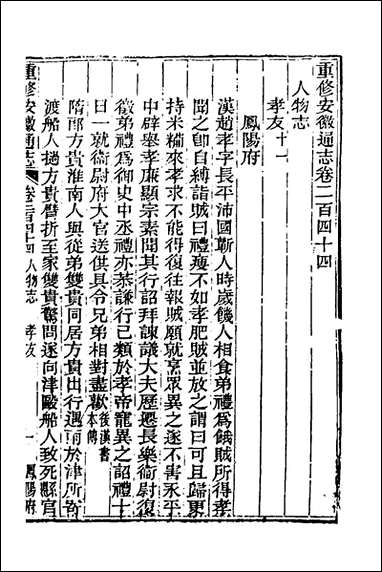 重修安徽通志卷二百四十四
人物志
孝友十一
鳳陽府
漢趙孝字長平沛國蘄人時歲饑人相食弟禮爲餓賊所得孝
聞之卽自縛詣賊曰禮瘦不如孝肥賊並放之謂曰可且歸更
持米糒來孝求不能得復往報賊願就烹眾異之遂不害永平
中辟舉孝廉顯宗素聞其行詔拜諫議大夫歷遷長樂衞尉復
徵弟禮爲御史中丞禮亦恭謙行已類於孝帝寵異之詔禮十
日一就衞尉府大官送供具令兄弟相對盡歡後漢書本傳
隋郎方貴淮南人與從弟雙貴同居方貴出行遇雨於津所寄
渡船人撾方貴臂折至家雙貴驚問遂向津毆船人致死縣官
重修安徽通志
卷二百四十四 人物志 孝友 一 鳳陽府